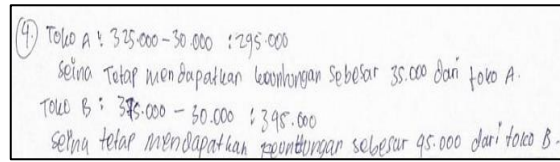 4. Toko A : 325.000 - 30.000 : 295.000
Seina Tetap mendapatkan keuntungan sebesar 35.000 dari toko A.
Toko B : 375.000 - 30.000 : 395.000
Seina tetap mendapatkan keuntungan sebesar 95.000 dari toko B.